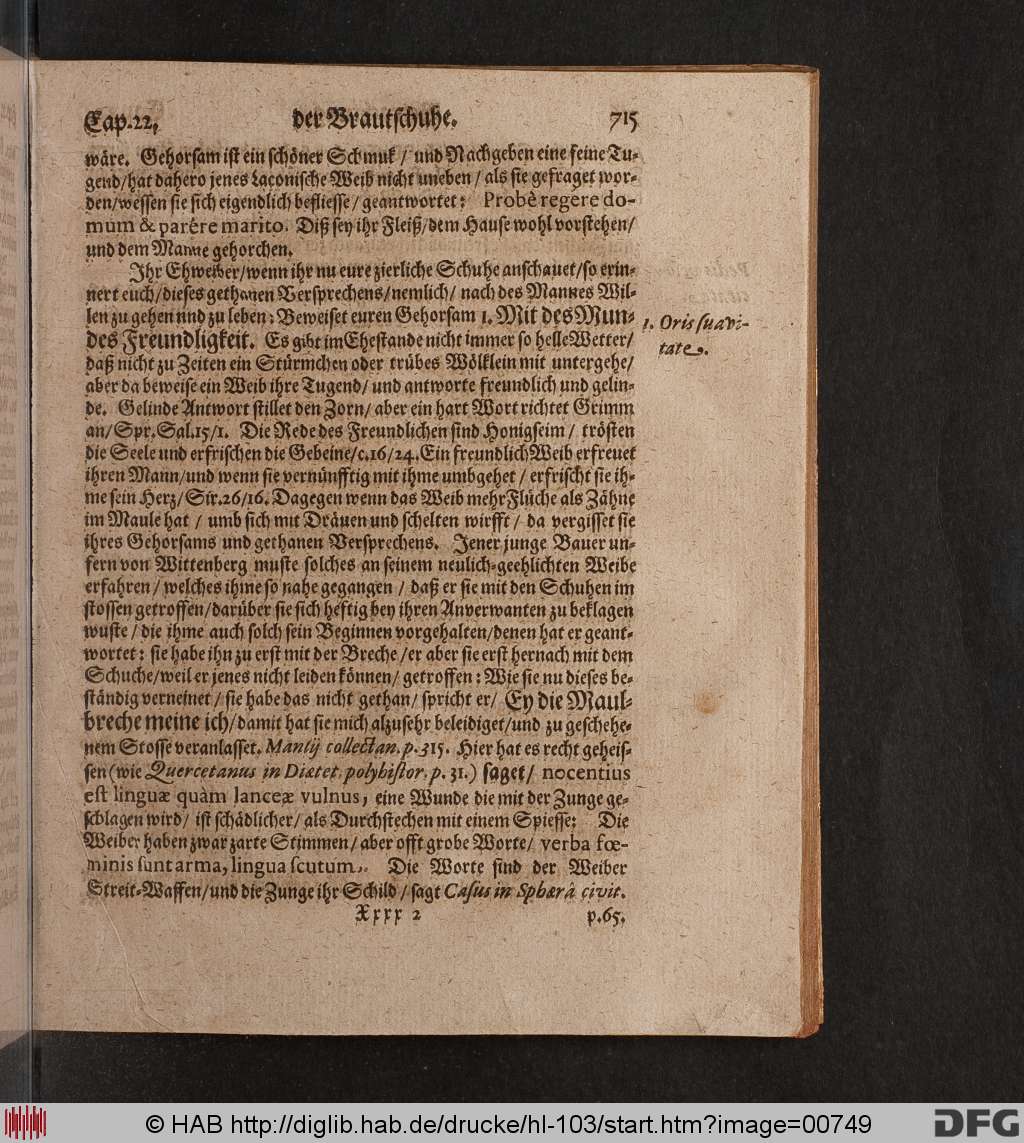 Cap. 22, der Brautschuhe. 715
wäre. Gehorsam ist ein schöner Schmuk / und Nachgeben eine feine Tu-
gend/hat dahero jenes Laconische Weib nicht uneben / als sie gefraget wor-
den/wessen sie sich eigendlich befliesse/geantwortet: Probè regere do-
mum & parêre marito. Diß sey ihr Fleiß/dem Hause wohl vorstehen/
und dem Manne gehorchen.
Ihr Ehweiber/wenn ihr nu eure zierliche Schuhe anschauet/so erin-
nert euch/dieses gethanen Versprechens/nemlich/ nach des Mannes Wil-
len zu gehen und zu leben: Beweiset euren Gehorsam 1. Mit des Mun-
des Freundligkeit. Es gibt im Ehestande nicht immer so helle Wetter/
1. Oris suavi-
tate.
daß nicht zu Zeiten ein Stürmchen oder trübes Wölklein mit untergehe/
aber da beweise ein Weib ihre Tugend/und antworte freundlich und gelin-
de. Gelinde Antwort stillet den Zorn/ aber ein hart Wort richtet Grimm
an/Spr. Sal. 15/1. Die Rede des Freundlichen sind Honigseim / trösten
die Seele und erfrischen die Gebeine/c.16/24. Ein freundlich Weib erfreuet
ihren Mann/und wenn sie vernünfftig mit ihme umbgehet / erfrischt sie ih-
me sein Herz/Sir.26/16. Dagegen wenn das Weib mehr Flüche als Zähne
im Maule hat / umb sich mit Dräuen und schelten wirfft / da vergisset sie
ihres Gehorsams und gethanen Versprechens. Jener junge Bauer un-
fern von Wittenberg muste solches an seinem neulich-geehlichten Weibe
erfahren / welches ihme so nahe gegangen / daß er sie mit den Schuhen im
stossen getroffen/darüber sie sich heftig bey ihren Anverwanten zu beklagen
wuste / die ihme auch solch sein Beginnen vorgehalten/denen hat er geant-
wortet: sie habe ihn zu erst mit der Breche /er aber sie erst hernach mit dem
Schuche/weil er jenes nicht leiden können/ getroffen: Wie sie nu dieses be-
ständig verneinet / sie habe das nicht gethan/ spricht er/ Ey die Maul-
breche meine ich/damit hat sie mich alzusehr beleidiget/und zu geschehe-
nem Stosse veranlasset. Manlij collectan. p. 315. Hier hat es recht geheis-
sen (wie Quercetanus in Diætet. polyhistor. p. 31.) saget/ nocentius
est linguæ quàm lanceæ vulnus, eine Wunde die mit der Zunge ge-
schlagen wird/ ist schädlicher/ als Durchstechen mit einem Spiesse: Die
Weiber haben zwar zarte Stimmen/ aber offt grobe Worte/ verba fœ-
minis sunt arma, lingua scutum. Die Worte sind der Weiber
Streit-Waffen/und die Zunge ihr Schild/ sagt Casus in Sphærâ civit.
Xxxx 2 p.65.
© HAB http://diglib.hab.de/drucke/hl-103/start.htm?image=00749
DFG